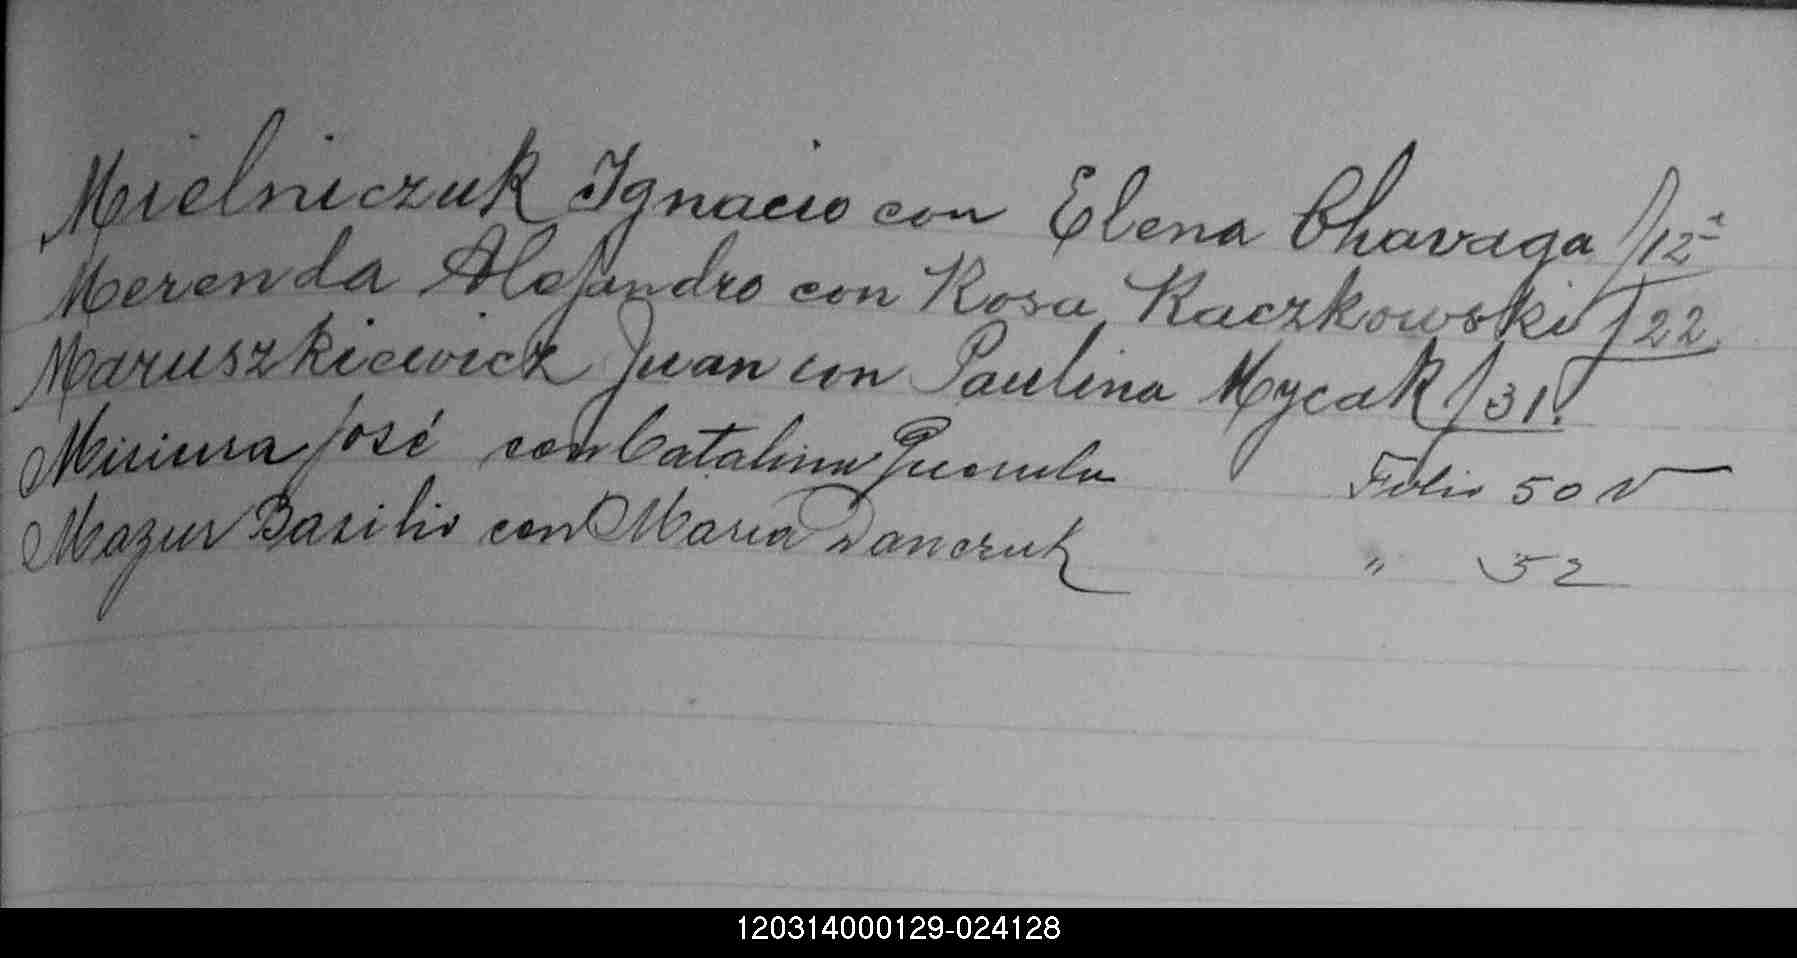 Mielniczuk Ignacio con Elena Chavaga f/12ª
Merenda Alejandro con Rosa Kaczkowski f/22.
Maruszkiewicz Juan con Paulina Mycak f/31.
José con Catalina Folio 50 v
Mazur Basilio con Maria Danczuk " 52
120314000129-024128